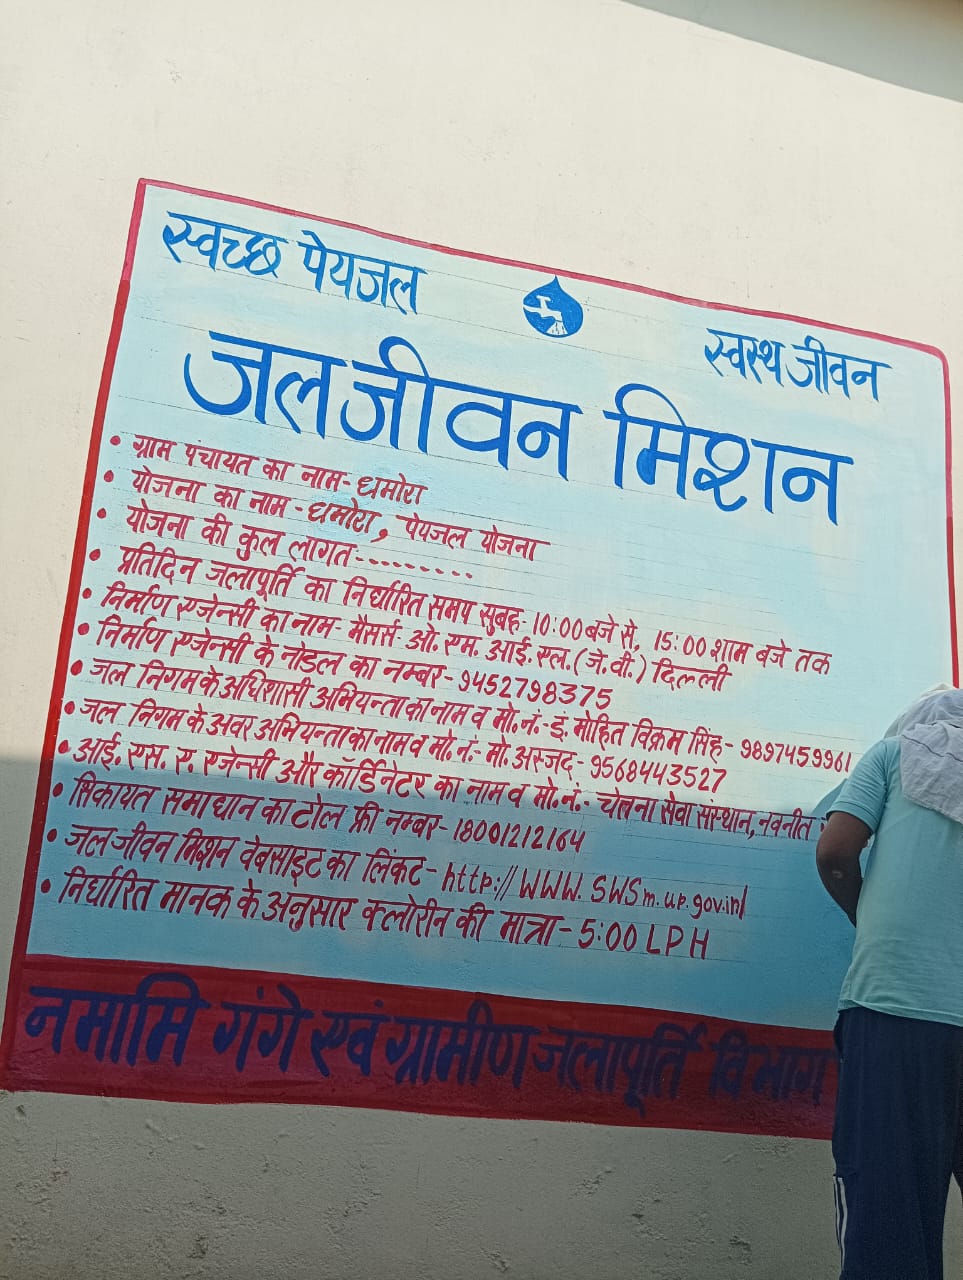 स्वच्छ पेयजल
स्वस्थ जीवन
जल जीवन मिशन
• ग्राम पंचायत का नाम- धमोरा
• योजना का नाम - धमोरा, पेयजल योजना
• योजना की कुल लागत-.........
• प्रतिदिन जलापूर्ति का निर्धारित समय सुबह- 10:00 बजे से, 15:00 शाम बजे तक
• निर्माण एजेन्सी का नाम- मैसर्स- ओ. एम. आई. एल. (जे. वी.) दिल्ली
• निर्माण एजेन्सी के नोडल का नम्बर- 9452798375
• जल निगम के अधिशासी अभियन्ता का नाम व मो. नं.- इं. मोहित विक्रम सिंह- 9897459961
• जल निगम के अवर अभियन्ता का नाम व मो. नं:- मो. अस्जद- 9568443527
• आई. एस. ए. एजेन्सी और कॉर्डिनेटर का नाम व मो. नं.- चेतना सेवा संस्थान, नवनीत
• शिकायत समाधान का टोल फ्री नम्बर- 18001212164
• जल जीवन मिशन वेबसाइट का लिंकट- http://WWW.SWSm.up.gov.in/
• निर्धारित मानक के अनुसार क्लोरीन की मात्रा- 5:00 LPH
नमामि गंगे एवं ग्रामीण जलापूर्ति विभाग